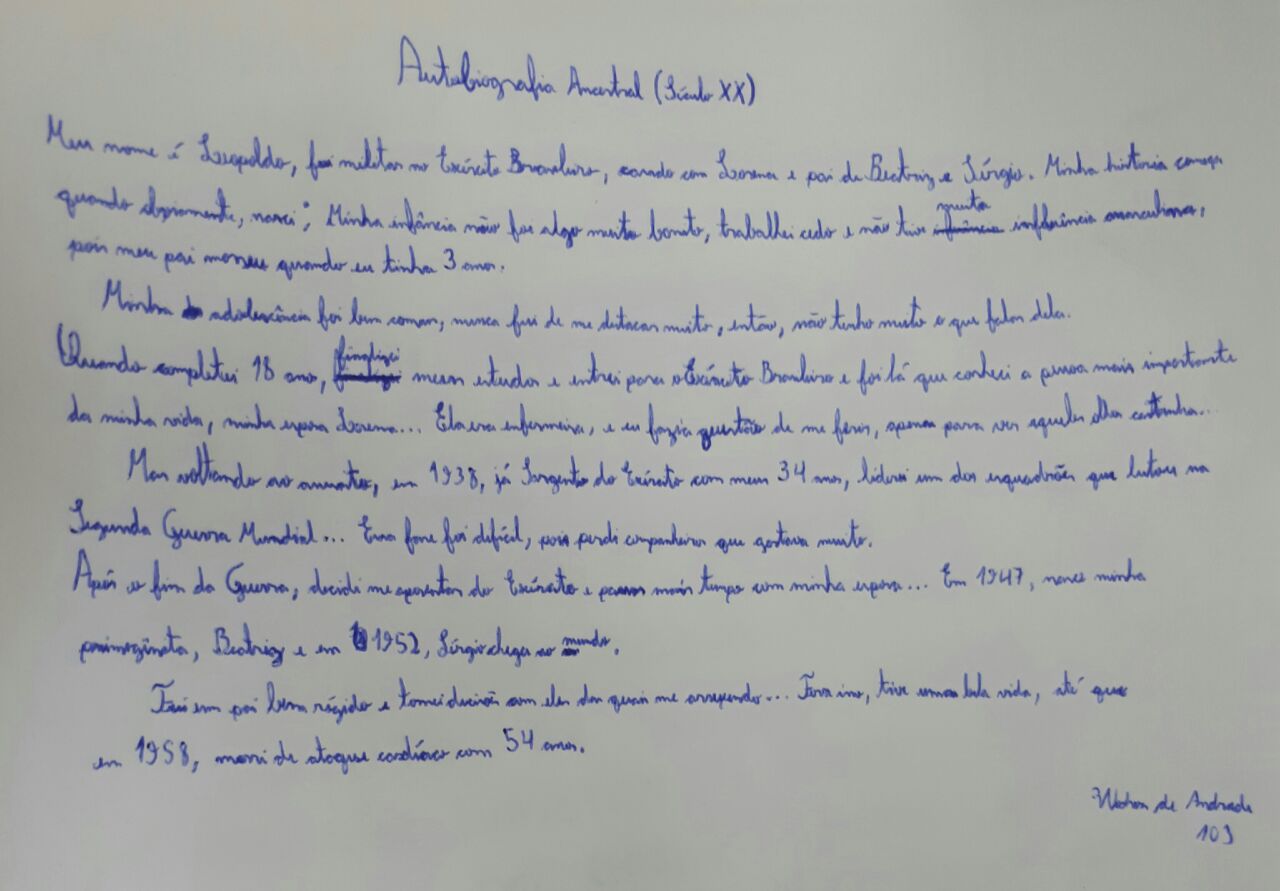 Autobiografia Ancestral (Século XX)
Meu nome é Leopoldo, fui militar no Exército Brasileiro, casado com Lorena e pai de Beatriz e Sérgio. Minha historia começa
quando obviamente, nasci; Minha infância não foi algo muito bonito, trabalhei cedo e não tive muita influência masculina,
pois meu pai morreu quando eu tinha 3 anos.
Minha adolescência foi bem comum, nunca fui de me destacar muito, então, não tenho muito o que falar dela.
Quando completei 18 ano, finalizei meus estudos e entrei para o Exército Brasileiro e foi lá que conheci a pessoa mais importante
da minha vida, minha esposa Lorena... Ela era enfermeira, e eu fazia questão de me ferir, apenas para ver aqueles olhos castanhos...
Mas voltando ao assunto, em 1938, já Sargento do Exército com meus 34 anos, liderei um dos esquadrões que lutou na
Segunda Guerra Mundial... Essa fase foi difícil, pois perdi companheiros que gostava muito.
Após o fim da Guerra, decidi me aposentar do Exército e passar mais tempo com minha esposa... Em 1947, nasce minha
primogênita, Beatriz e em 1952, Sérgio chega ao mundo.
Fui um pai bem rígido e tomei decisões com eles das quais me arrependo... Fora isso, tive uma bela vida, até que
em 1958, morri de ataque cardíaco com 54 anos.
de Andrade
103